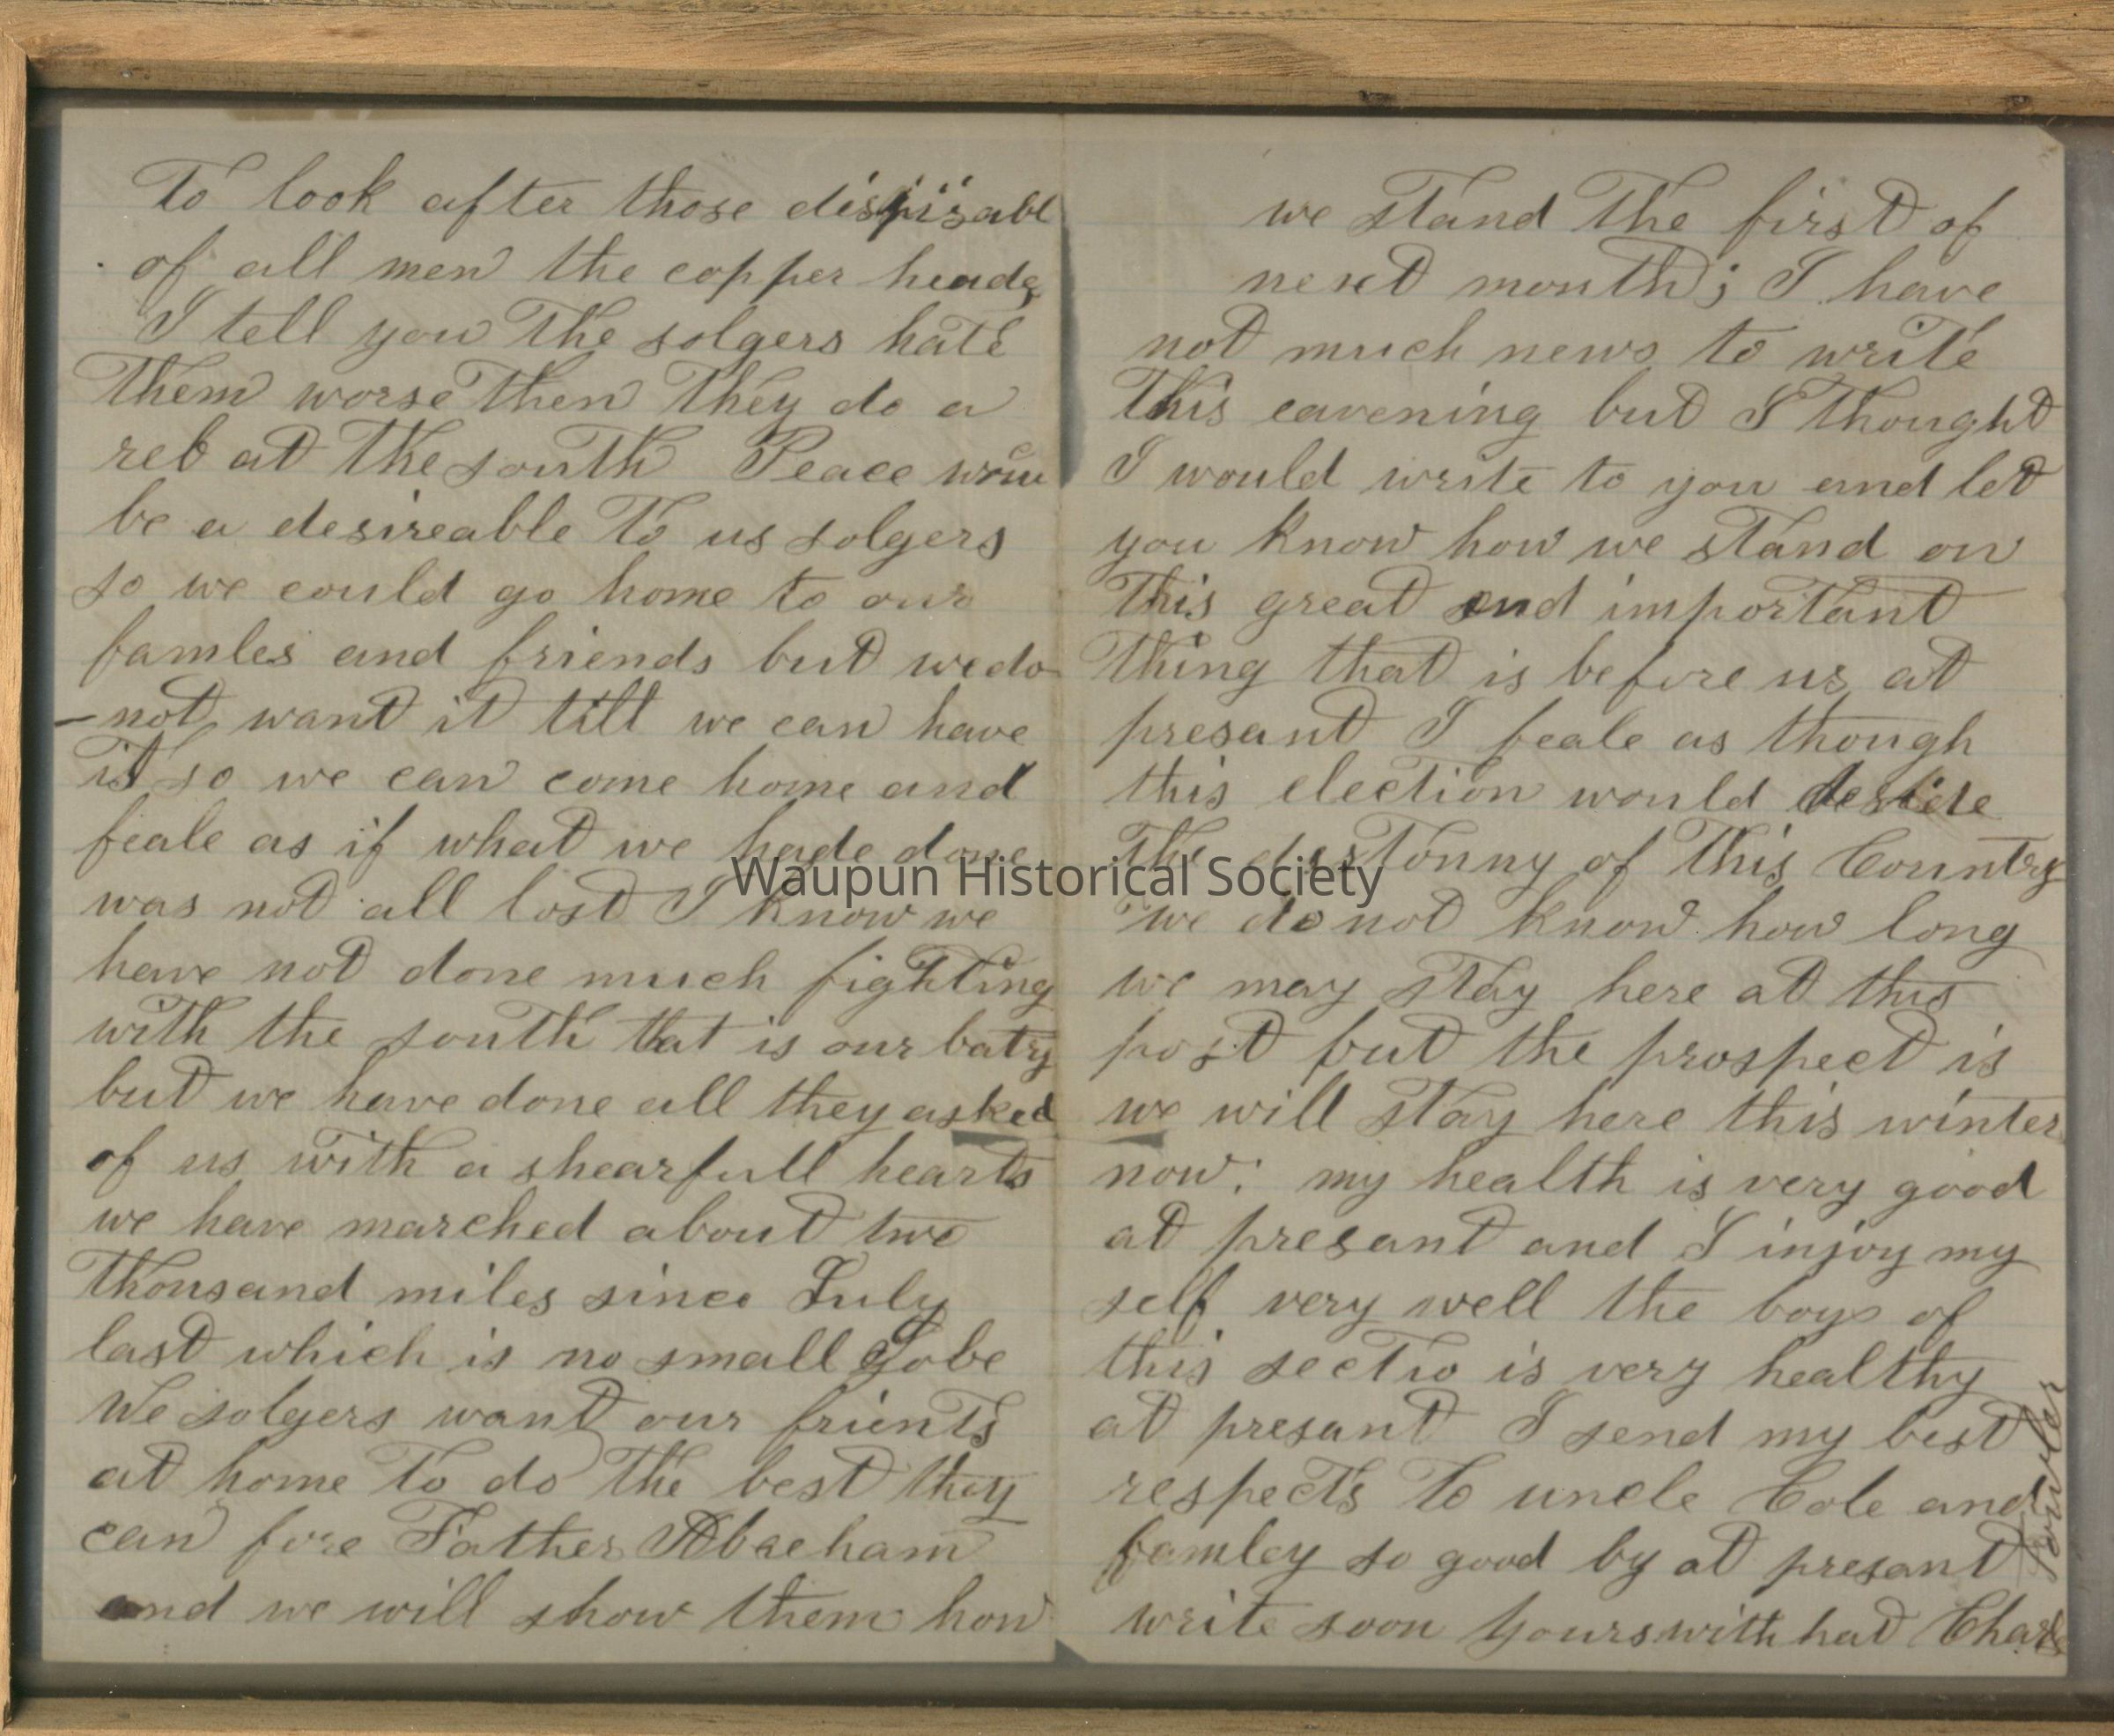 To look after those dispisabl
of all men the copper heads
I tell you The solgers hate
Them worse then They do a
reb at The south Peace wou
be a desireable To us solgers
so we could go home to our
famles and friends but we do
not want it till we can have
it so we can come home and
feale as if what we hade done
was not all lost I know we
have not done much fighting
with the south that is our batry
but we have done all they asked
of us with a shearfull hearts
we have marched about two
Thousand miles since July
last which is no small Jobe
We solgers want our frients
at home To do The best they
can fore Father Abraham
and we will show them how
we stand The first of
next month; I have
not much news to write
This eavening but I thought
I would write to you and let
you know how we stand on
This great and important
Thing that is before us at
presant I feale as though
this election would deside
The destonny of This Country
we do not know how long
we may stay here at this
post but the prospect is
we will stay here this winter
now: my health is very good
at presant and I injoy my
self very well the boys of
this sectio is very healthy
at presant I send my best
respects To uncle Cole and
famley so good by at presant
write soon Yours with hat Charls
Fowler
Waupun Historical Society